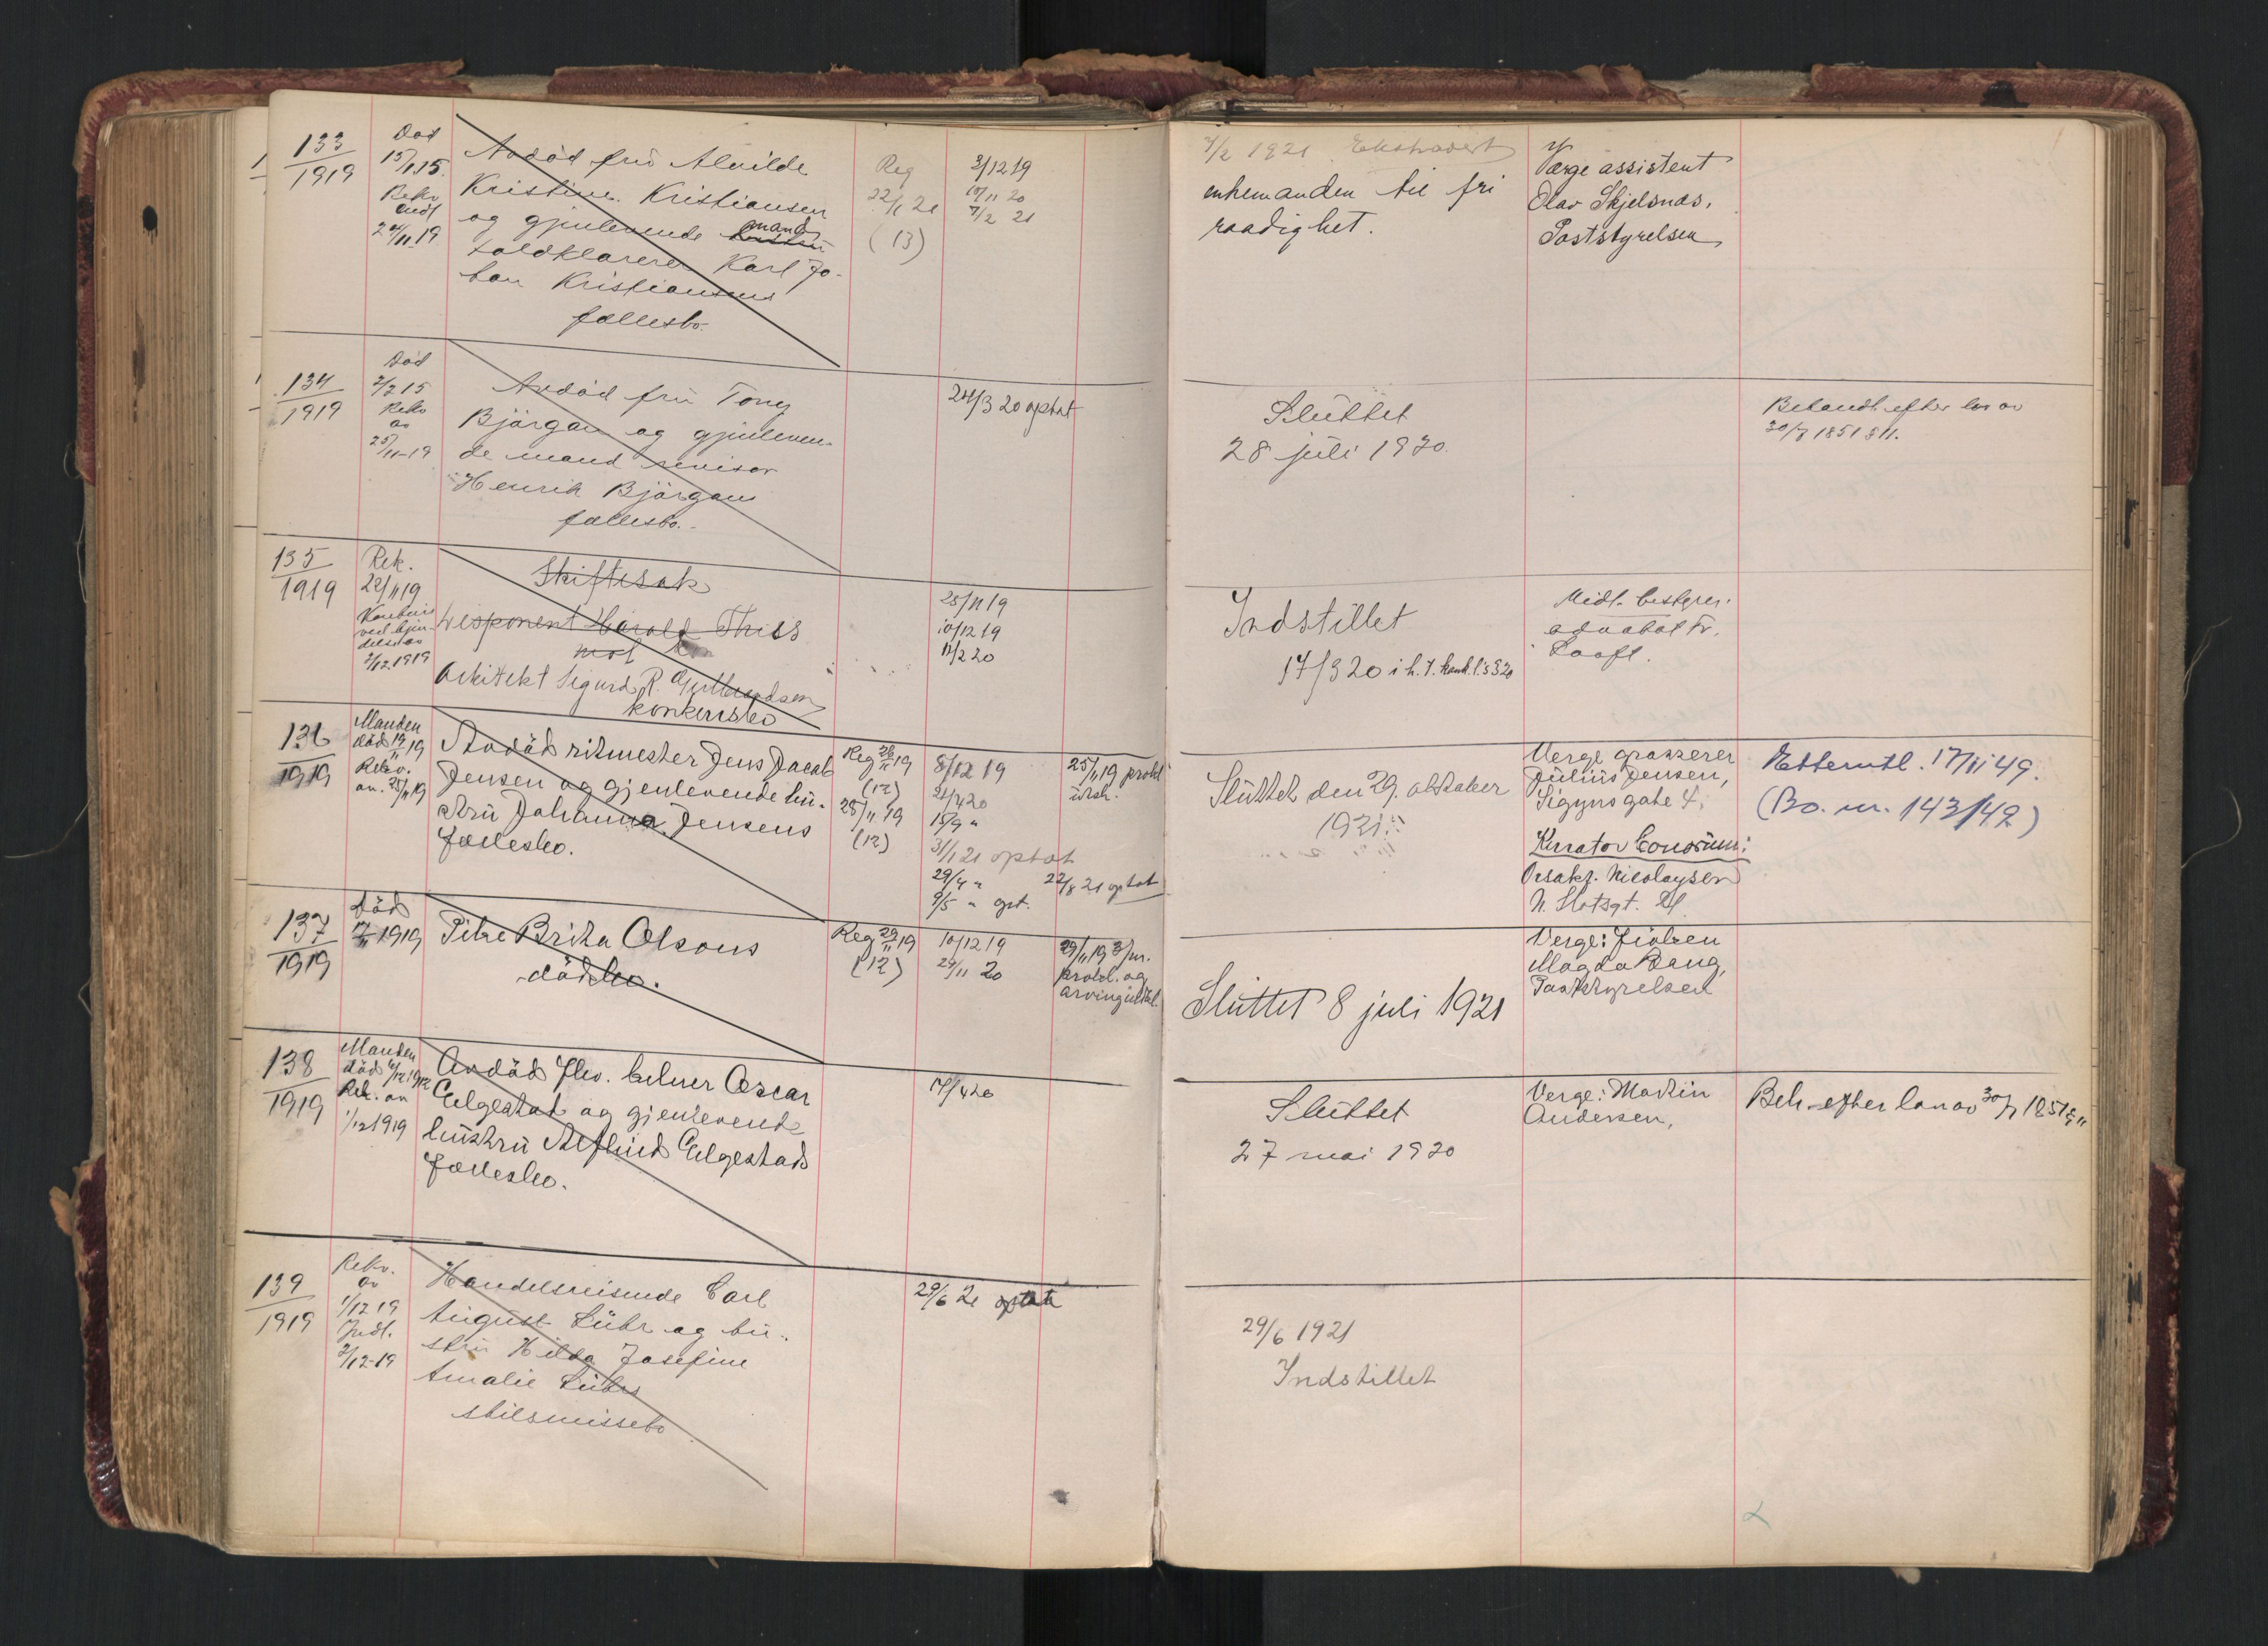 133
1919
Död
15/1.15.
Rekv
indl
24/11.19
Avdöd fru Alvilde
Kristine Kristiansen
og gjenlevende mand
toldklarerer Karl Jo-
han Kristiansens
fællesbo.
Reg
22/1 21
(13)
3/12 19
10/11 20
7/2 21
7/2 1921 Ekstradert
enkemanden til fri
raadighet.
Værge assistent
Olav Skjelsnæs,
Poststyrelsen
134
1919
Död
2/2 15
Rekv
av
25/11-19
Avdöd fru Tony
Björgan og gjenleven-
de mand revisor
Henrik Björgans
fællesbo.
24/3 20 optat
Sluttet
28 juli 1920.
Behandl. efter lov av
30/7 1851 § 11.
135
1919
Rek.
22/11 19
Konkurs
ved kjen-
delse av
2/12.1919
Skiftesak
Disponent Harald Thiis
mot
Arkitekt Sigurd R. Gulbrandsen
konkursbo
25/11 19
10/12 19
11/2 20
Indstillet
17/3 20 i h. t. konk.l.s § 20
Midl. bestyrer:
advokat Fr.
136
1919
Manden
död 19/11 19
Rekv.
av. 25/11 19
Avdöd ritmester Jens Jacob
Jensen og gjenlevende hu-
stru Johanna Jensens
fællesbo.
Reg 26/11 19
(12)
28/11 19
(12)
8/12 19
21/4 20
15/9 "
31/1 21 optat
29/4 "
9/5 " opt.
25/11 19 prokl
utst.
22/8 21 optat
Sluttet den 29. oktober
1921.
Verge grosserer
Julius Jensen,
Sigyns gate 4;
Kurator bonorum:
Orsakf. Nicolaysen
N. Slotsgt. 21
Etterutl. 17/11 49.
(Bo. nr. 143/42)
137
1919
Död
17/11 1919
Pike Brita Olsons
dödsbo.
Reg 29/11 19
(12)
10/12 19
29/11 20
29/11 19 3/mr.
prokl. og
arvingutkl.
Sluttet 8 juli 1921
Verge: Frøken
Magda Bang,
Poststyrelsen
138
1919
Manden
död 6/12 1912
Rek. av
1/12 1919
Avdöd fhv. Oscar
Elgestad og gjenlevende
hustru Elgestads
fællesbo.
17/4 20
Sluttet
27 mai 1920
Verge: Martin
Andersen,
Beh. efter lov av 30/7 1851 § 11
139
1919
Rekv.
av
1/12 19
Indl.
2/12-19
Handelsreisende Carl
August Lühr og hu-
stru Hilda Josefine
Amalie Lührs
skilsmissebo
29/6 21 optat
29/6 1921
Indstillet